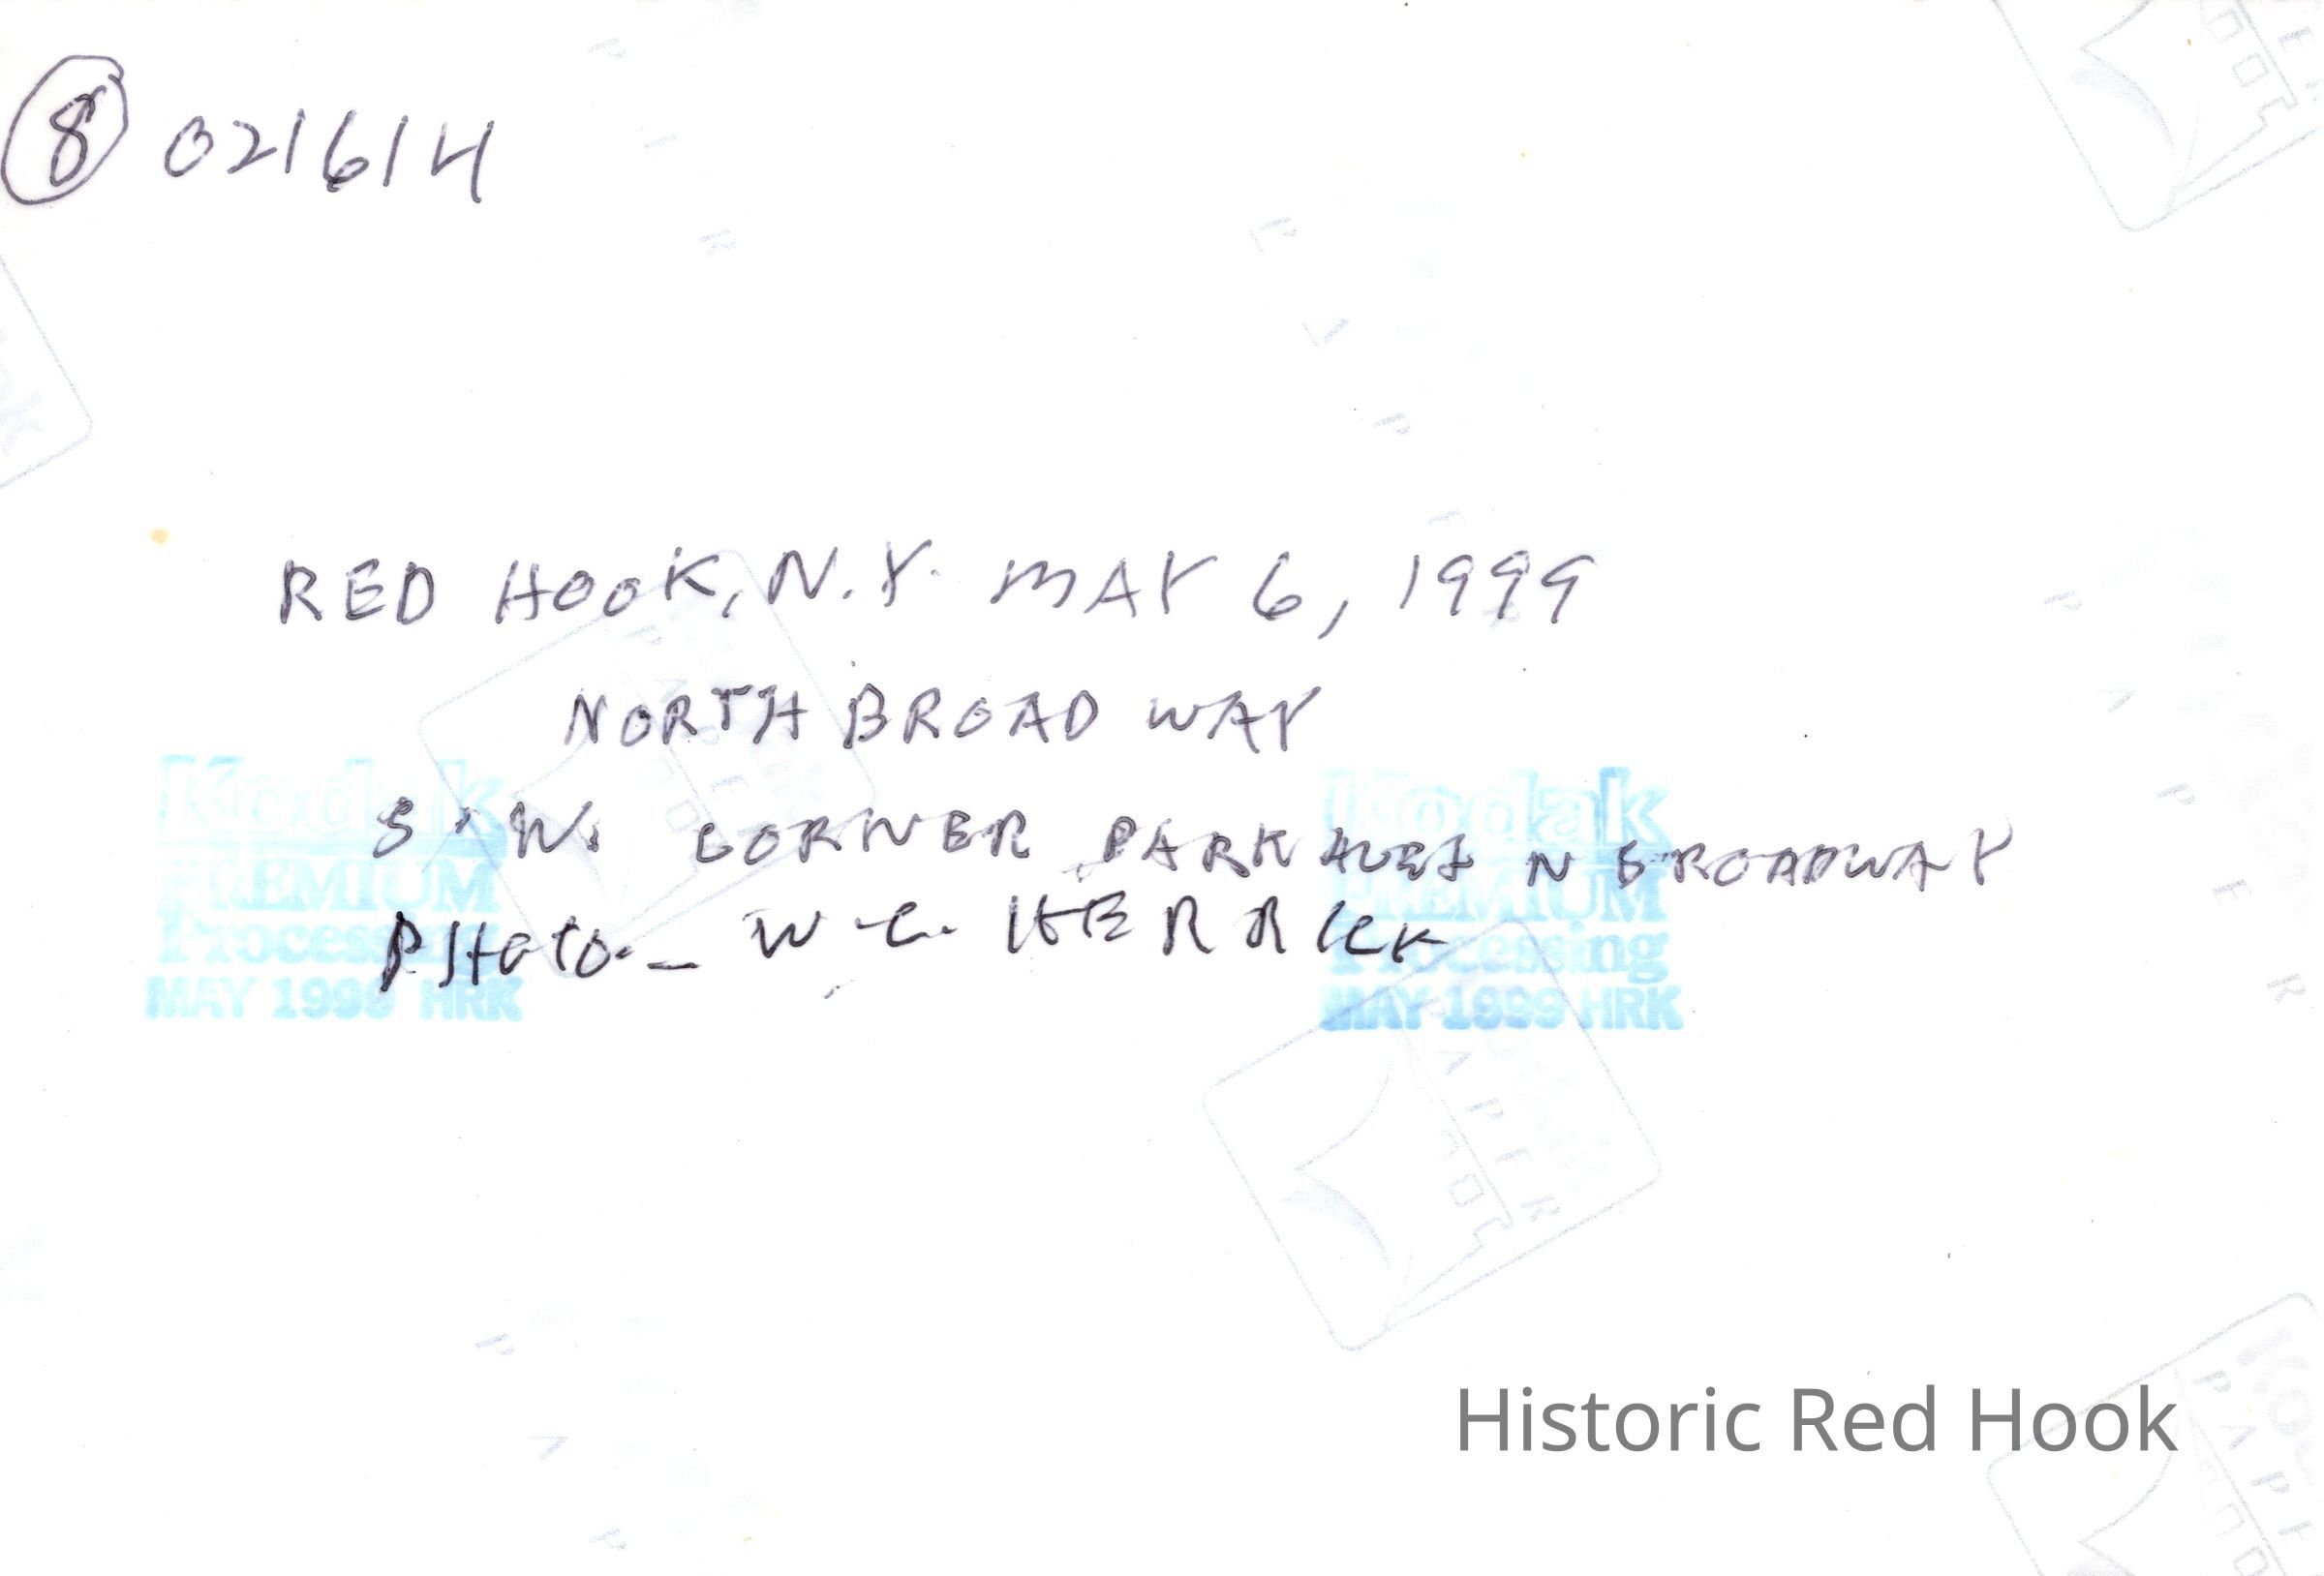 8 021614
RED HOOK, N.Y. MAY 6, 1999
NORTH BROADWAY
S.W. CORNER PARK AVE & N BROADWAY
PHOTO. - W. C. HERRICK
Kodak
PREMIUM
Processing
MAY 1999 HRK
Kodak
PREMIUM
Processing
MAY 1999 HRK
Historic Red Hook